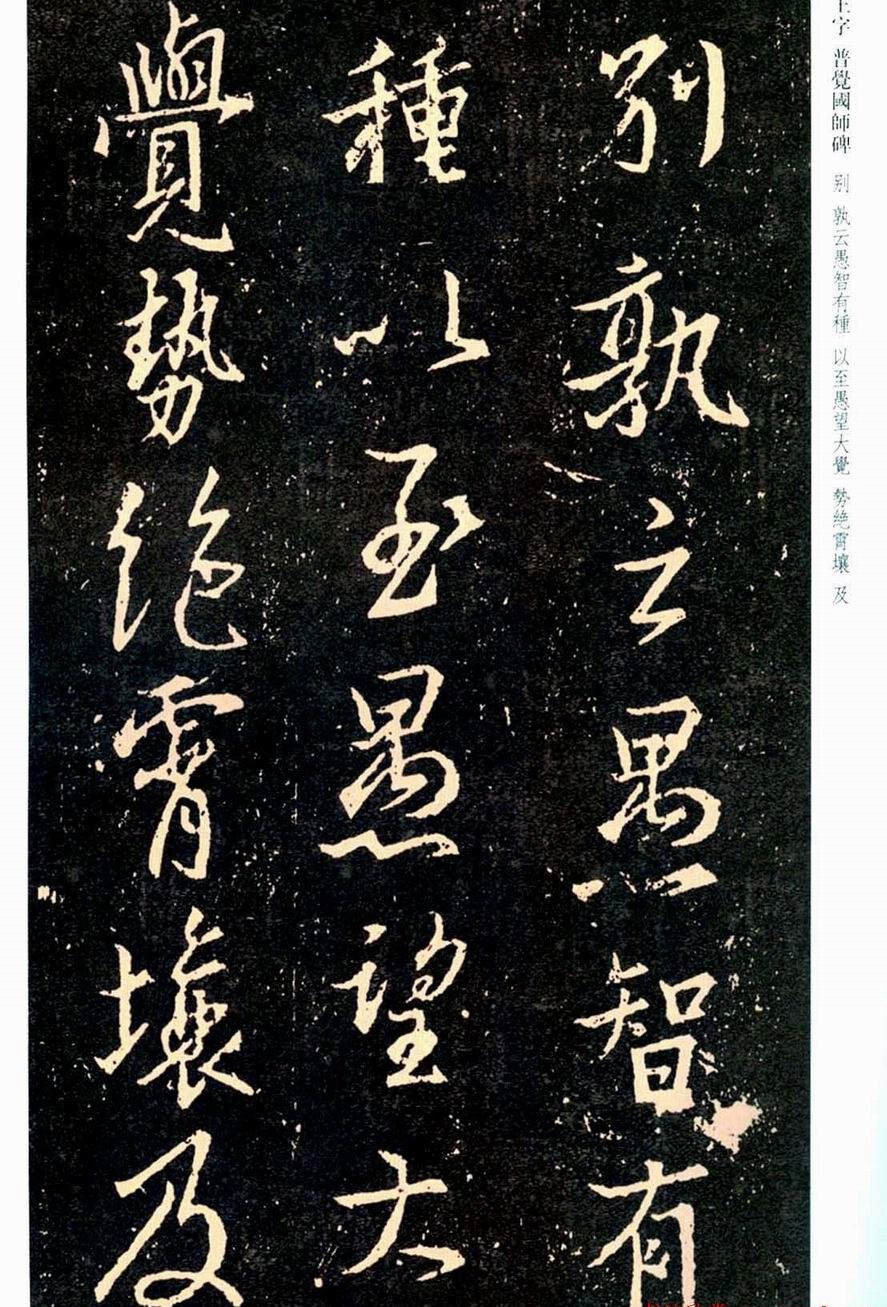 王字 普覺國師碑 别 孰云愚智有種 以至愚望大覺 勢絶霄壤 及
别孰云愚智有
種以至愚望大
覺勢絶霄壤及